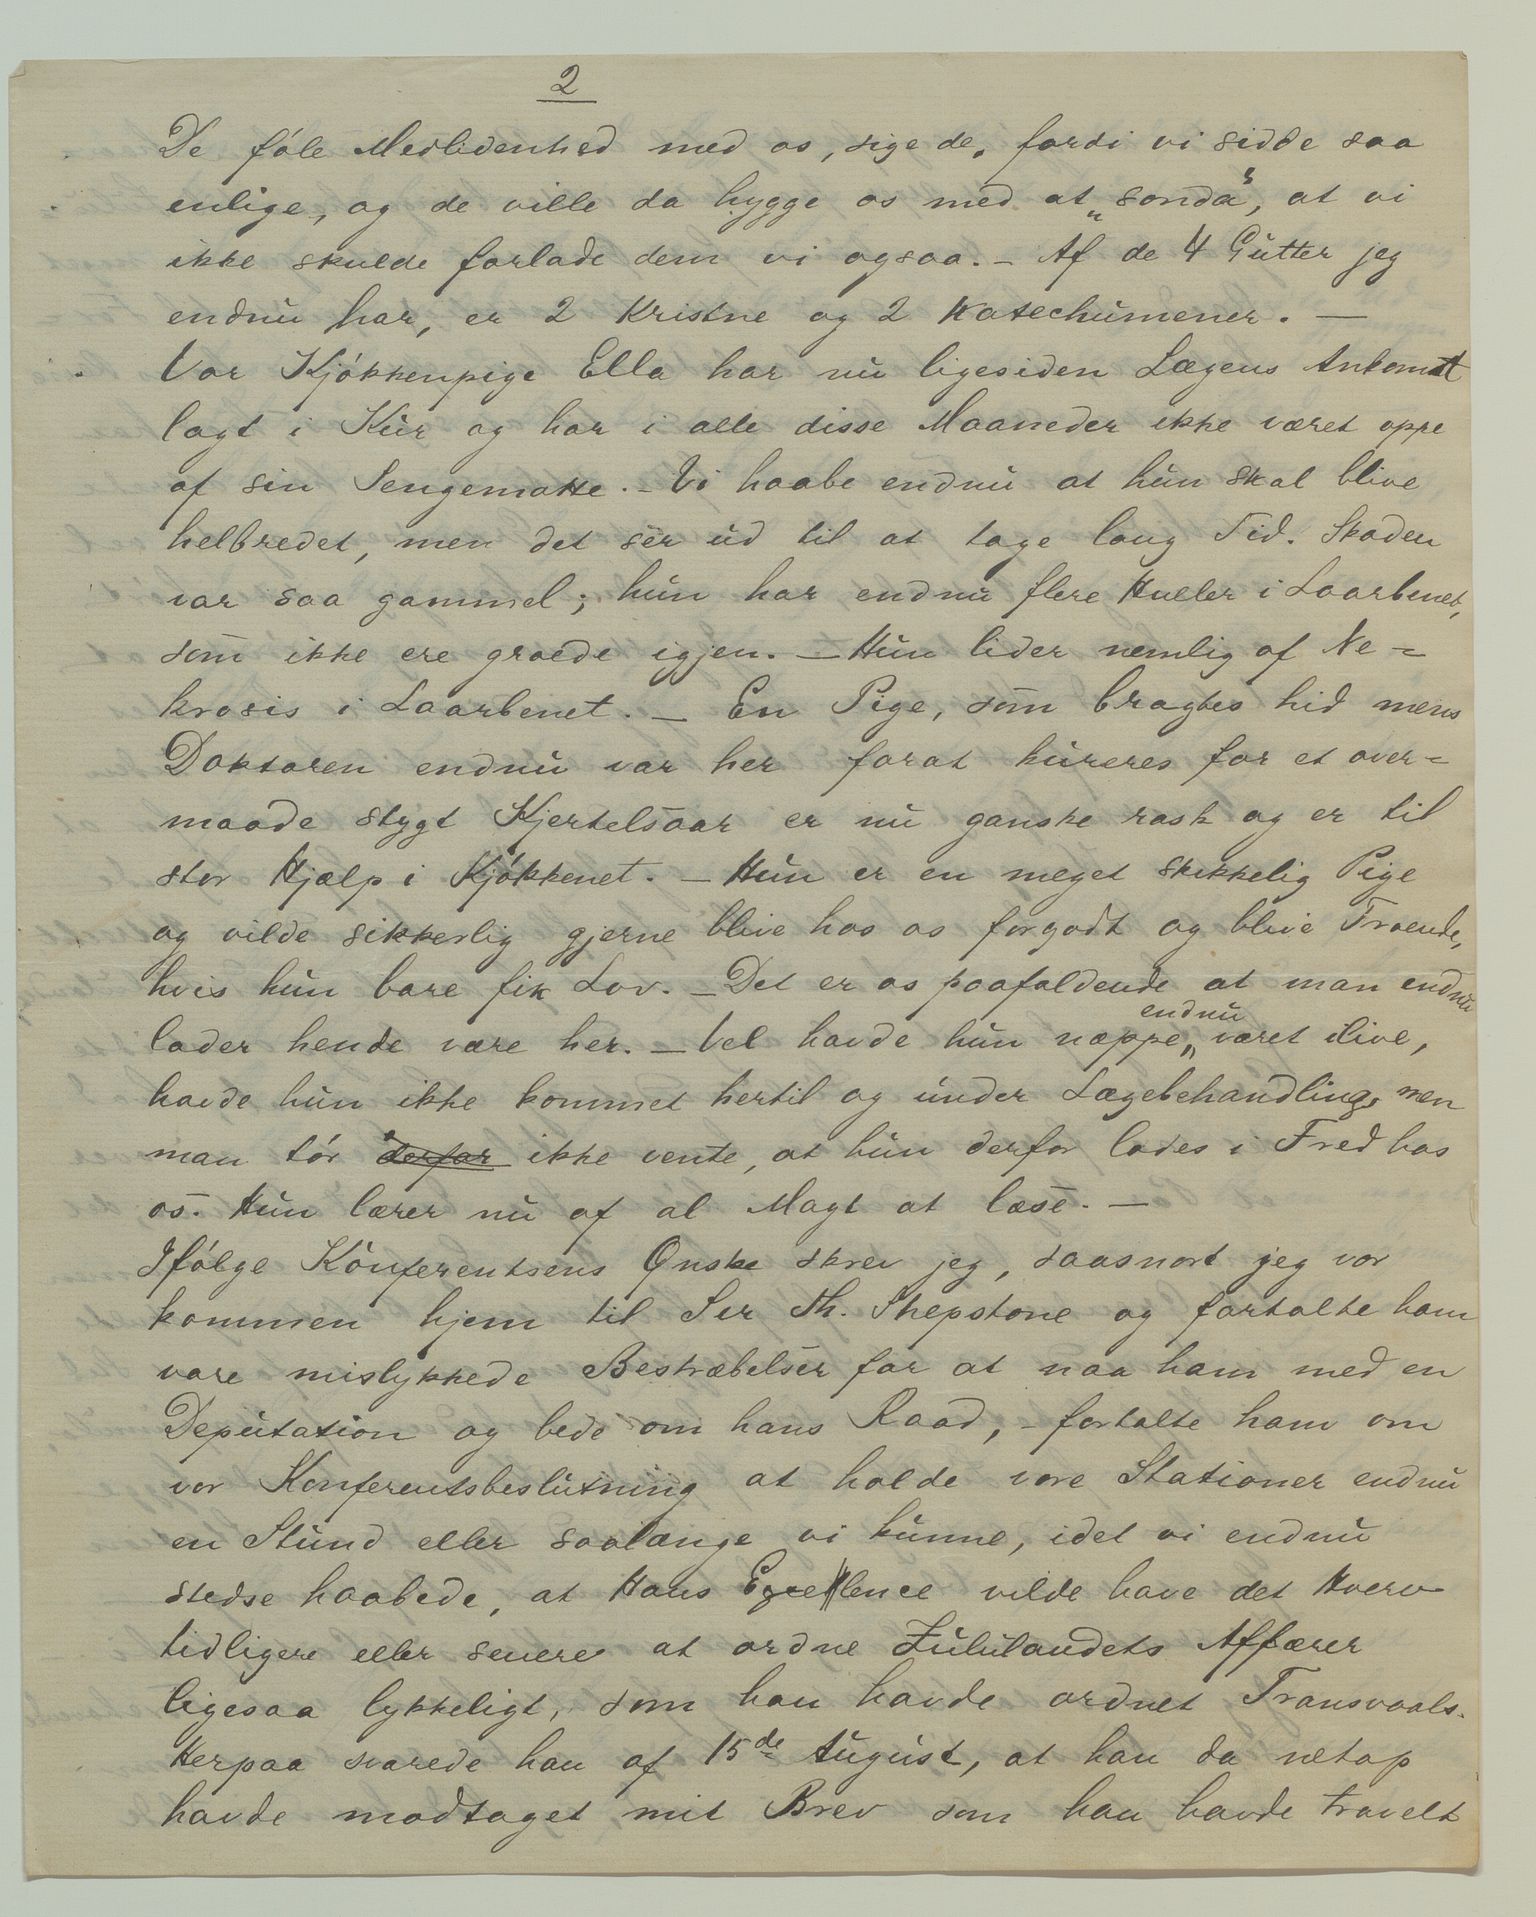 2
De føle Medlidenhed med os, sige de, fordi vi sidde saa
enlige, og de ville da hygge os med at „sonda“, at vi
ikke skulde forlade dem vi ogsaa. – Af de 4 Gutter jeg
endnu har, er 2 Kristne og 2 Katechumener. –
Vor Kjøkkenpige Ella har nu ligesiden Lægens Ankomst
lagt i Kur og har i alle disse Maaneder ikke været oppe
af sin Sengematte. – Vi haabe endnu at hun skal blive
helbredet, men det ser ud til at tage lang Tid. Skaden
var saa gammel; hun har endnu flere Huller i Laarbenet,
som ikke ere groede igjen. – Hun lider nemlig af Ne=
krosis i Laarbenet. – En Pige, som bragtes hid mens
Doktoren endnu var her forat kureres for et over=
maade stygt Kjertelsaar er nu ganske rask og er til
stor Hjælp i Kjøkkenet. – Hun er en meget skikkelig Pige
og vilde sikkerlig gjerne blive hos os forgodt og blive Troende,
hvis hun bare fik Lov. – Det er os paafaldende at man endnu
lader hende være her. – Vel havde hun næppe endnu været ilive,
havde hun ikke kommet hertil og under Lægebehandling, men
man tør derfor ikke vente, at hun derfor lades i Fred hos
os. Hun lærer nu af al Magt at læse. –
Ifølge Konferentsens Ønske skrev jeg, saasnart jeg var
kommen hjem til Sir Th. Shepstone og fortalte ham
vore mislykkede Bestræbelser for at naa ham med en
Deputation og bede om hans Raad, – fortalte ham om
vor Konferentsbeslutning at holde vore Stationer endnu
en Stund eller saalænge vi kunne, idet vi endnu
stedse haabede, at Hans Excellence vilde have det Hverv
tidligere eller senere at ordne Zululandets Affærer
ligesaa lykkeligt, som han havde ordnet Transvaals.
Herpaa svarede han af 15de August, at han da netop
havde modtaget mit Brev som han havde travelt